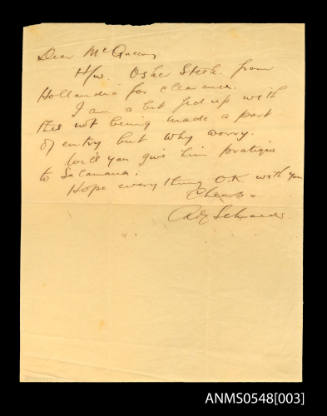 Dear McQueen
H/w. Osker Speck from
Hollandia for clearance.
I am a bit fed up with
this not being made a part
of entry but why worry.
Will you give him pratique
to Salamaua.
Hope everything OK with you
Cheers -
ANMS0548[003]